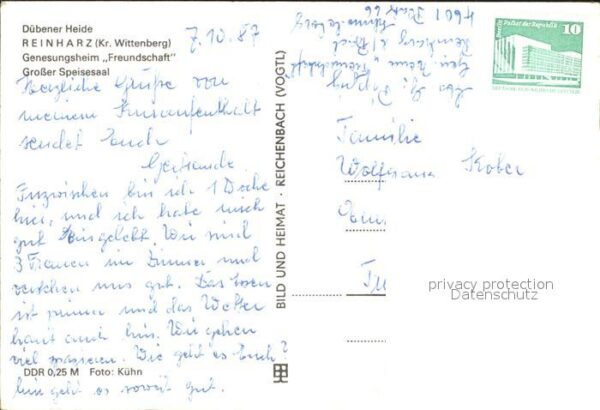 Dübener Heide
REINHARZ (Kr. Wittenberg)
Genesungsheim „Freundschaft"
Großer Speisesaal
7.10.87
Herzliche Grüße von
meinem Kuraufenthalt
sendet Euch
Inzwischen bin ich 1 Woche
hier, und ich habe mich
gut eingelebt. Wir sind
3 Frauen im Zimmer und
verstehen uns gut. Das Essen
ist prima und das Wetter
haut auch hin. Wir gehen
viel spazieren. Wie geht es Euch?
hier geht es soweit gut.
DDR 0,25 M Foto: Kühn
BILD UND HEIMAT · REICHENBACH (VOGTL)
4601
Reinharz
Gen. Heim „Freundschaft"
Berlin, Palast der Republik
10
Familie
Wolfgang Kober
privacy protection
Datenschutz